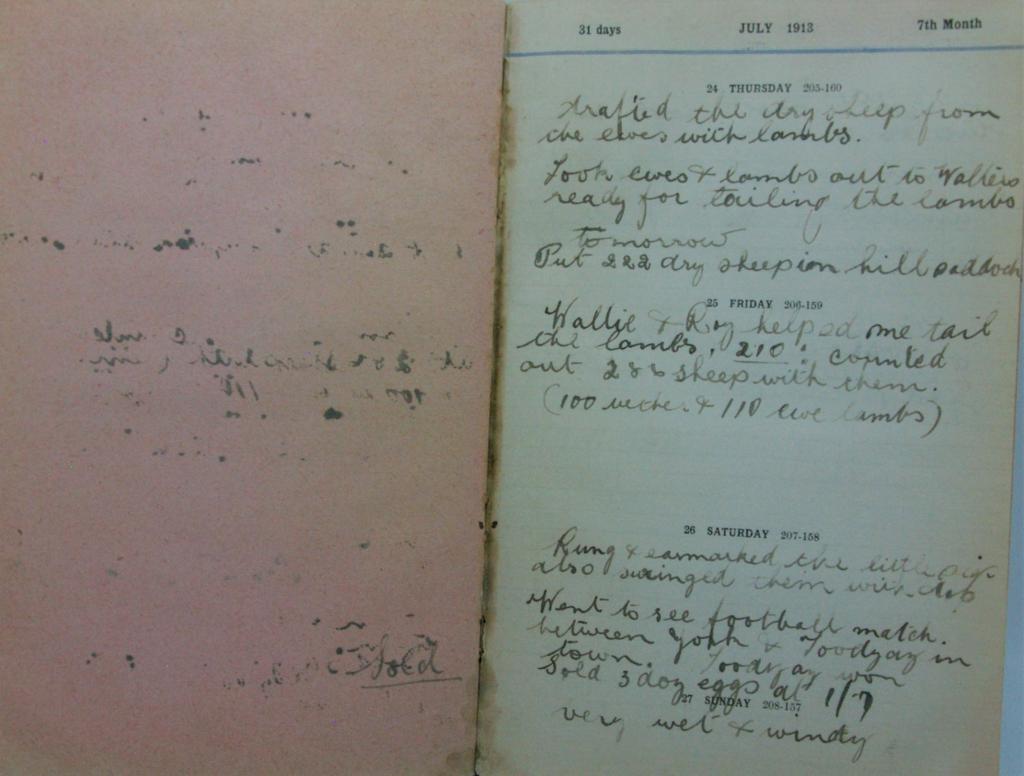 Sold
31 days JULY 1913 7th Month
24 THURSDAY 205-160
drafted the dry sheep from
the ewes with lambs.
Took ewes & lambs out to Walters
ready for tailing the lambs
tomorrow
Put 222 dry sheep in hill paddock
25 FRIDAY 206-159
Wallie & Roy helped me tail
the lambs, 210: counted
out 286 sheep with them.
(100 wether & 110 ewe lambs)
26 SATURDAY 207-158
Rung & earmarked the little pigs
also swinged them with
Went to see football match.
between York & Toodyay in
town. Toodyay won
Sold 3 doz eggs at 1/7
27 SUNDAY 208-157
very wet & windy